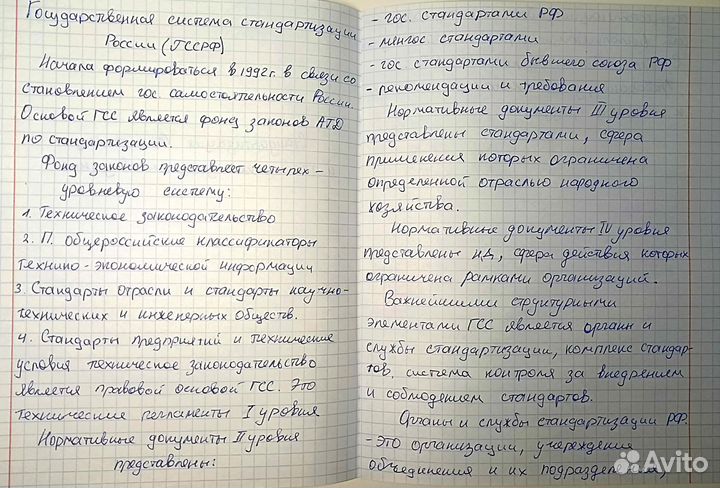 Государственная система стандартизации
России (ГССРФ)
Начала формироваться в 1992г. в связи со
становлением гос. самостоятельности России.
Основой ГСС является фонд законов АТД
по стандартизации.
Фонд законов представляет четырех-
уровневую систему:
1. Техническое законодательство
2. П. общероссийские классификаторы
технико-экономической информации
3. Стандарты отрасли и стандарты научно-
технических и инженерных обществ.
4. Стандарты предприятий и технические
условия техническое законодательство
является правовой основой ГСС. Это
технические регламенты I уровня
Нормативные документы II уровня
представлены:
- гос. стандартами РФ
- менгос. стандартами
- гос стандартами бывшего союза РФ
- рекомендации и требования
Нормативные документы III уровня
представлены стандартами, сфера
применения которых ограничена
определенной отраслью народного
хозяйства.
Нормативные документы IV уровня
представлены НД, сфера действия которых
ограничена рамками организаций.
Важнейшими структурными
элементами ГСС является органы и
службы стандартизации, комплекс стандар-
тов. система контроля за внедрением
и соблюдением стандартов.
Органы и службы стандартизации РФ.
- это организации, учреждение
объединения и их подразделения,
Avito